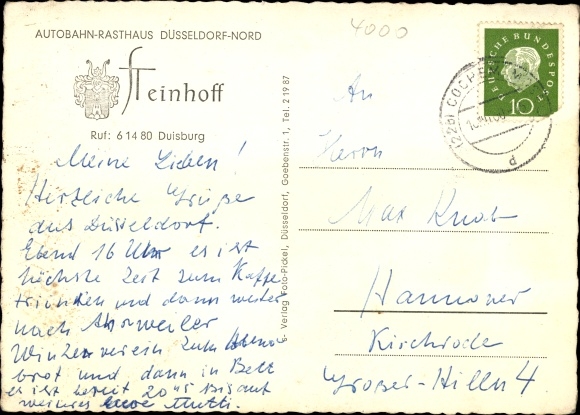 AUTOBAHN-RASTHAUS DÜSSELDORF-NORD
Steinhoff
Ruf: 6 14 80 Duisburg
4000
DEUTSCHE BUNDESPOST
10
Meine Lieben!
Herzliche Grüße
aus Düsseldorf.
Ebend 16 Uhr es ist
höchste Zeit zum Kaffe
trinken und dann weiter
nach Ahrweiler
Winzerverein zum Abend
brot und dann in Bett
es ist bereit 20 Bis auf
weiteres eure Mutti.
Verlag Foto-Pickel, Düsseldorf, Goebenstr. 1, Tel. 2 19 87
An
Herrn
Max Knob
Hannover
Kirchrode
Großer-Hillen 4